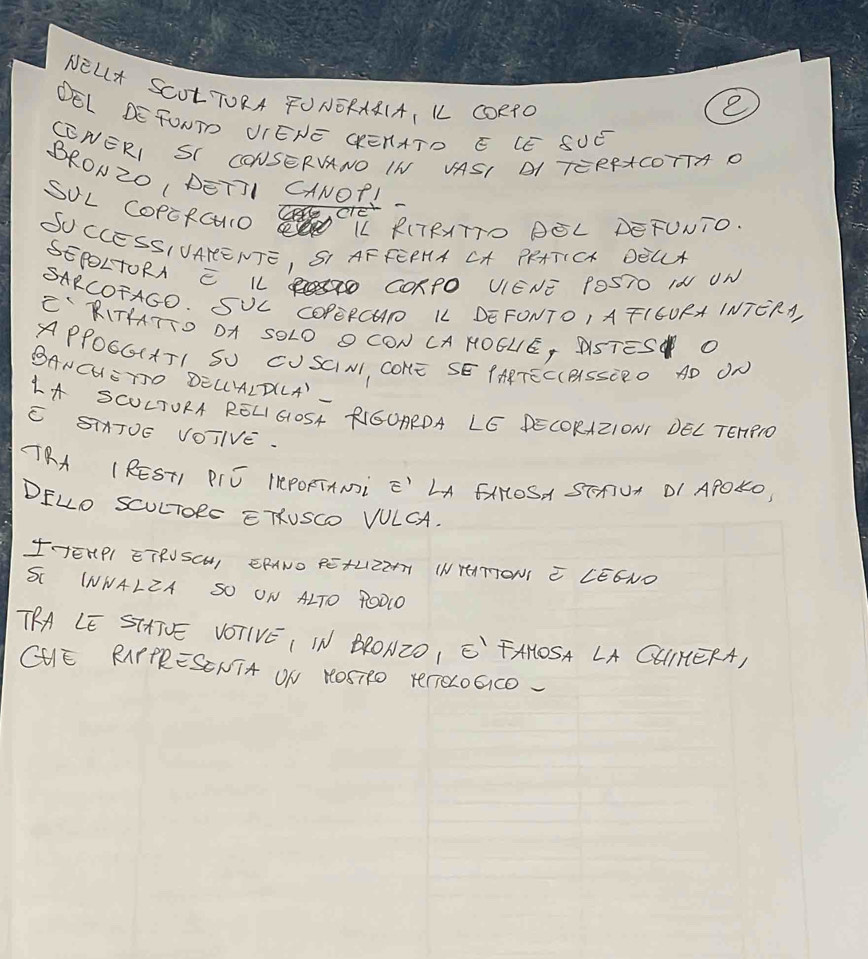 2
NELLA SCULTURA FUNERARIA, IL CORPO
DEL DEFUNTO VIENE CREMATO E LE SUE
CENERI SI CONSERVANO IN VASI DI TERRACOTTA O
BRONZO, DETTI CANOPI -
SUL COPERCHIO C'È IL RITRATTO DEL DEFUNTO.
SUCCESSIVAMENTE, SI AFFERMA LA PRATICA DELLA
SEPOLTURA E IL CORPO VIENE POSTO IN UN
SARCOFAGO. SUL COPERCHIO IL DEFUNTO, A FIGURA INTERA,
E' RITRATTO DA SOLO O CON LA MOGLIE, DISTESI O
APPOGGIATI SU CUSCINI, COME SE PARTECIPASSERO AD UN
BANCHETTO DELL'ALDILA' -
LA SCULTURA RELIGIOSA RIGUARDA LE DECORAZIONI DEL TEMPIO
E STATUE VOTIVE -
TRA I RESTI PIÙ IMPORTANTI E' LA FAMOSA STATUA DI APOLLO,
DELLO SCULTORE ETRUSCO VULCA.
I TEMPI ETRUSCHI, ERANO REALIZZATI IN MATTONI E LEGNO
SI INNALZA SU UN ALTO PODIO
TRA LE STATUE VOTIVE, IN BRONZO, E' FAMOSA LA CHIMERA,
CHE RAPPRESENTA UN MOSTRO MITOLOGICO -